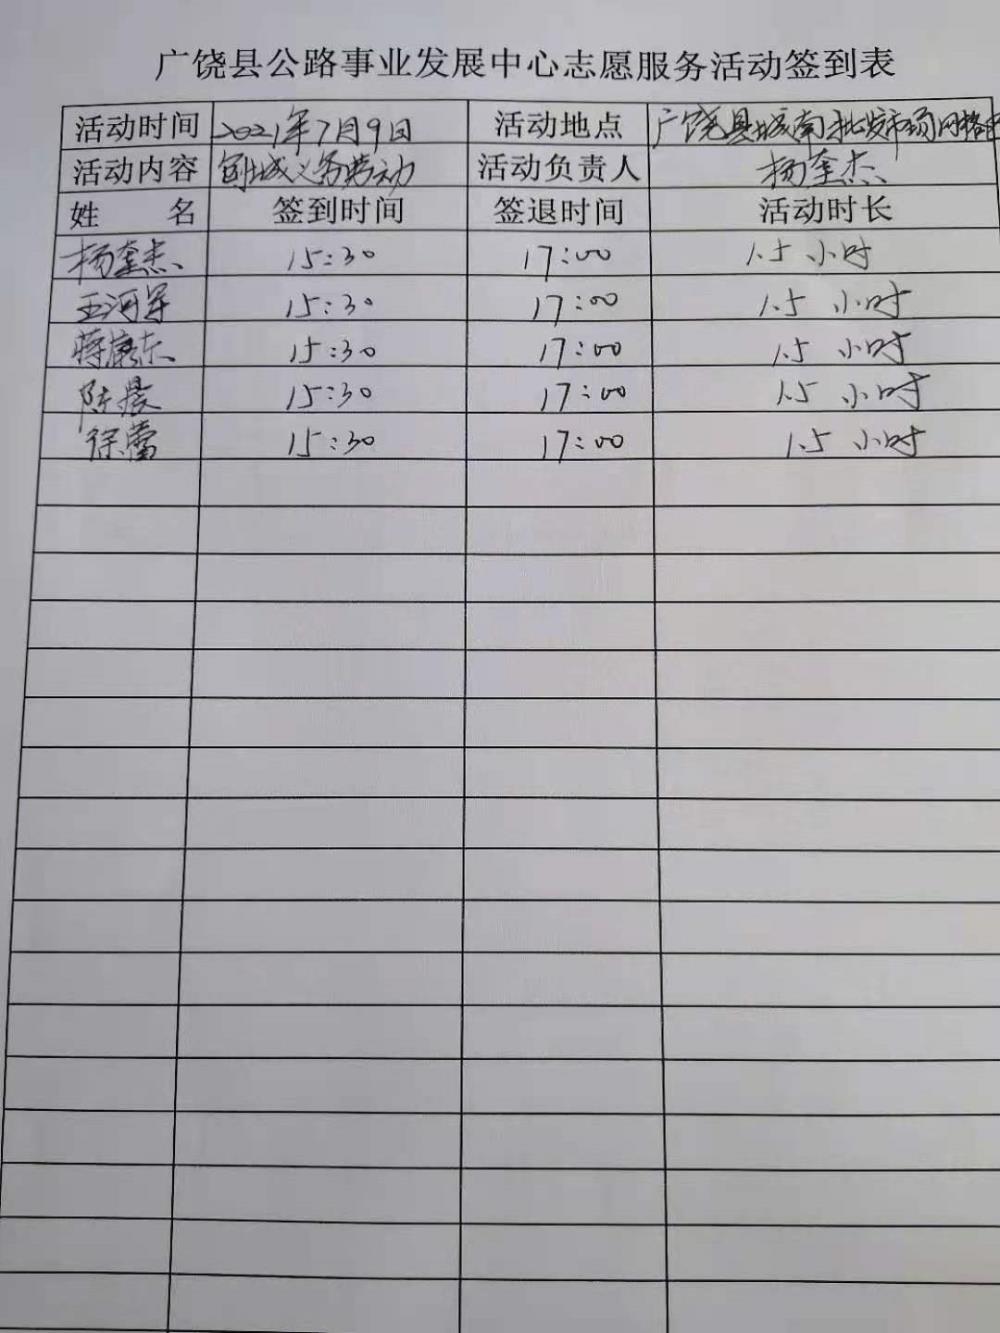 广饶县公路事业发展中心志愿服务活动签到表
活动时间 2021年7月9日 活动地点 广饶县城南批发市场网格
活动内容 创城义务劳动 活动负责人 杨奎杰
姓 名 签到时间 签退时间 活动时长
杨奎杰 15:30 17:00 1.5 小时
王河军 15:30 17:00 1.5 小时
蒋康东 15:30 17:00 1.5 小时
陈晨 15:30 17:00 1.5 小时
徐蕾 15:30 17:00 1.5 小时